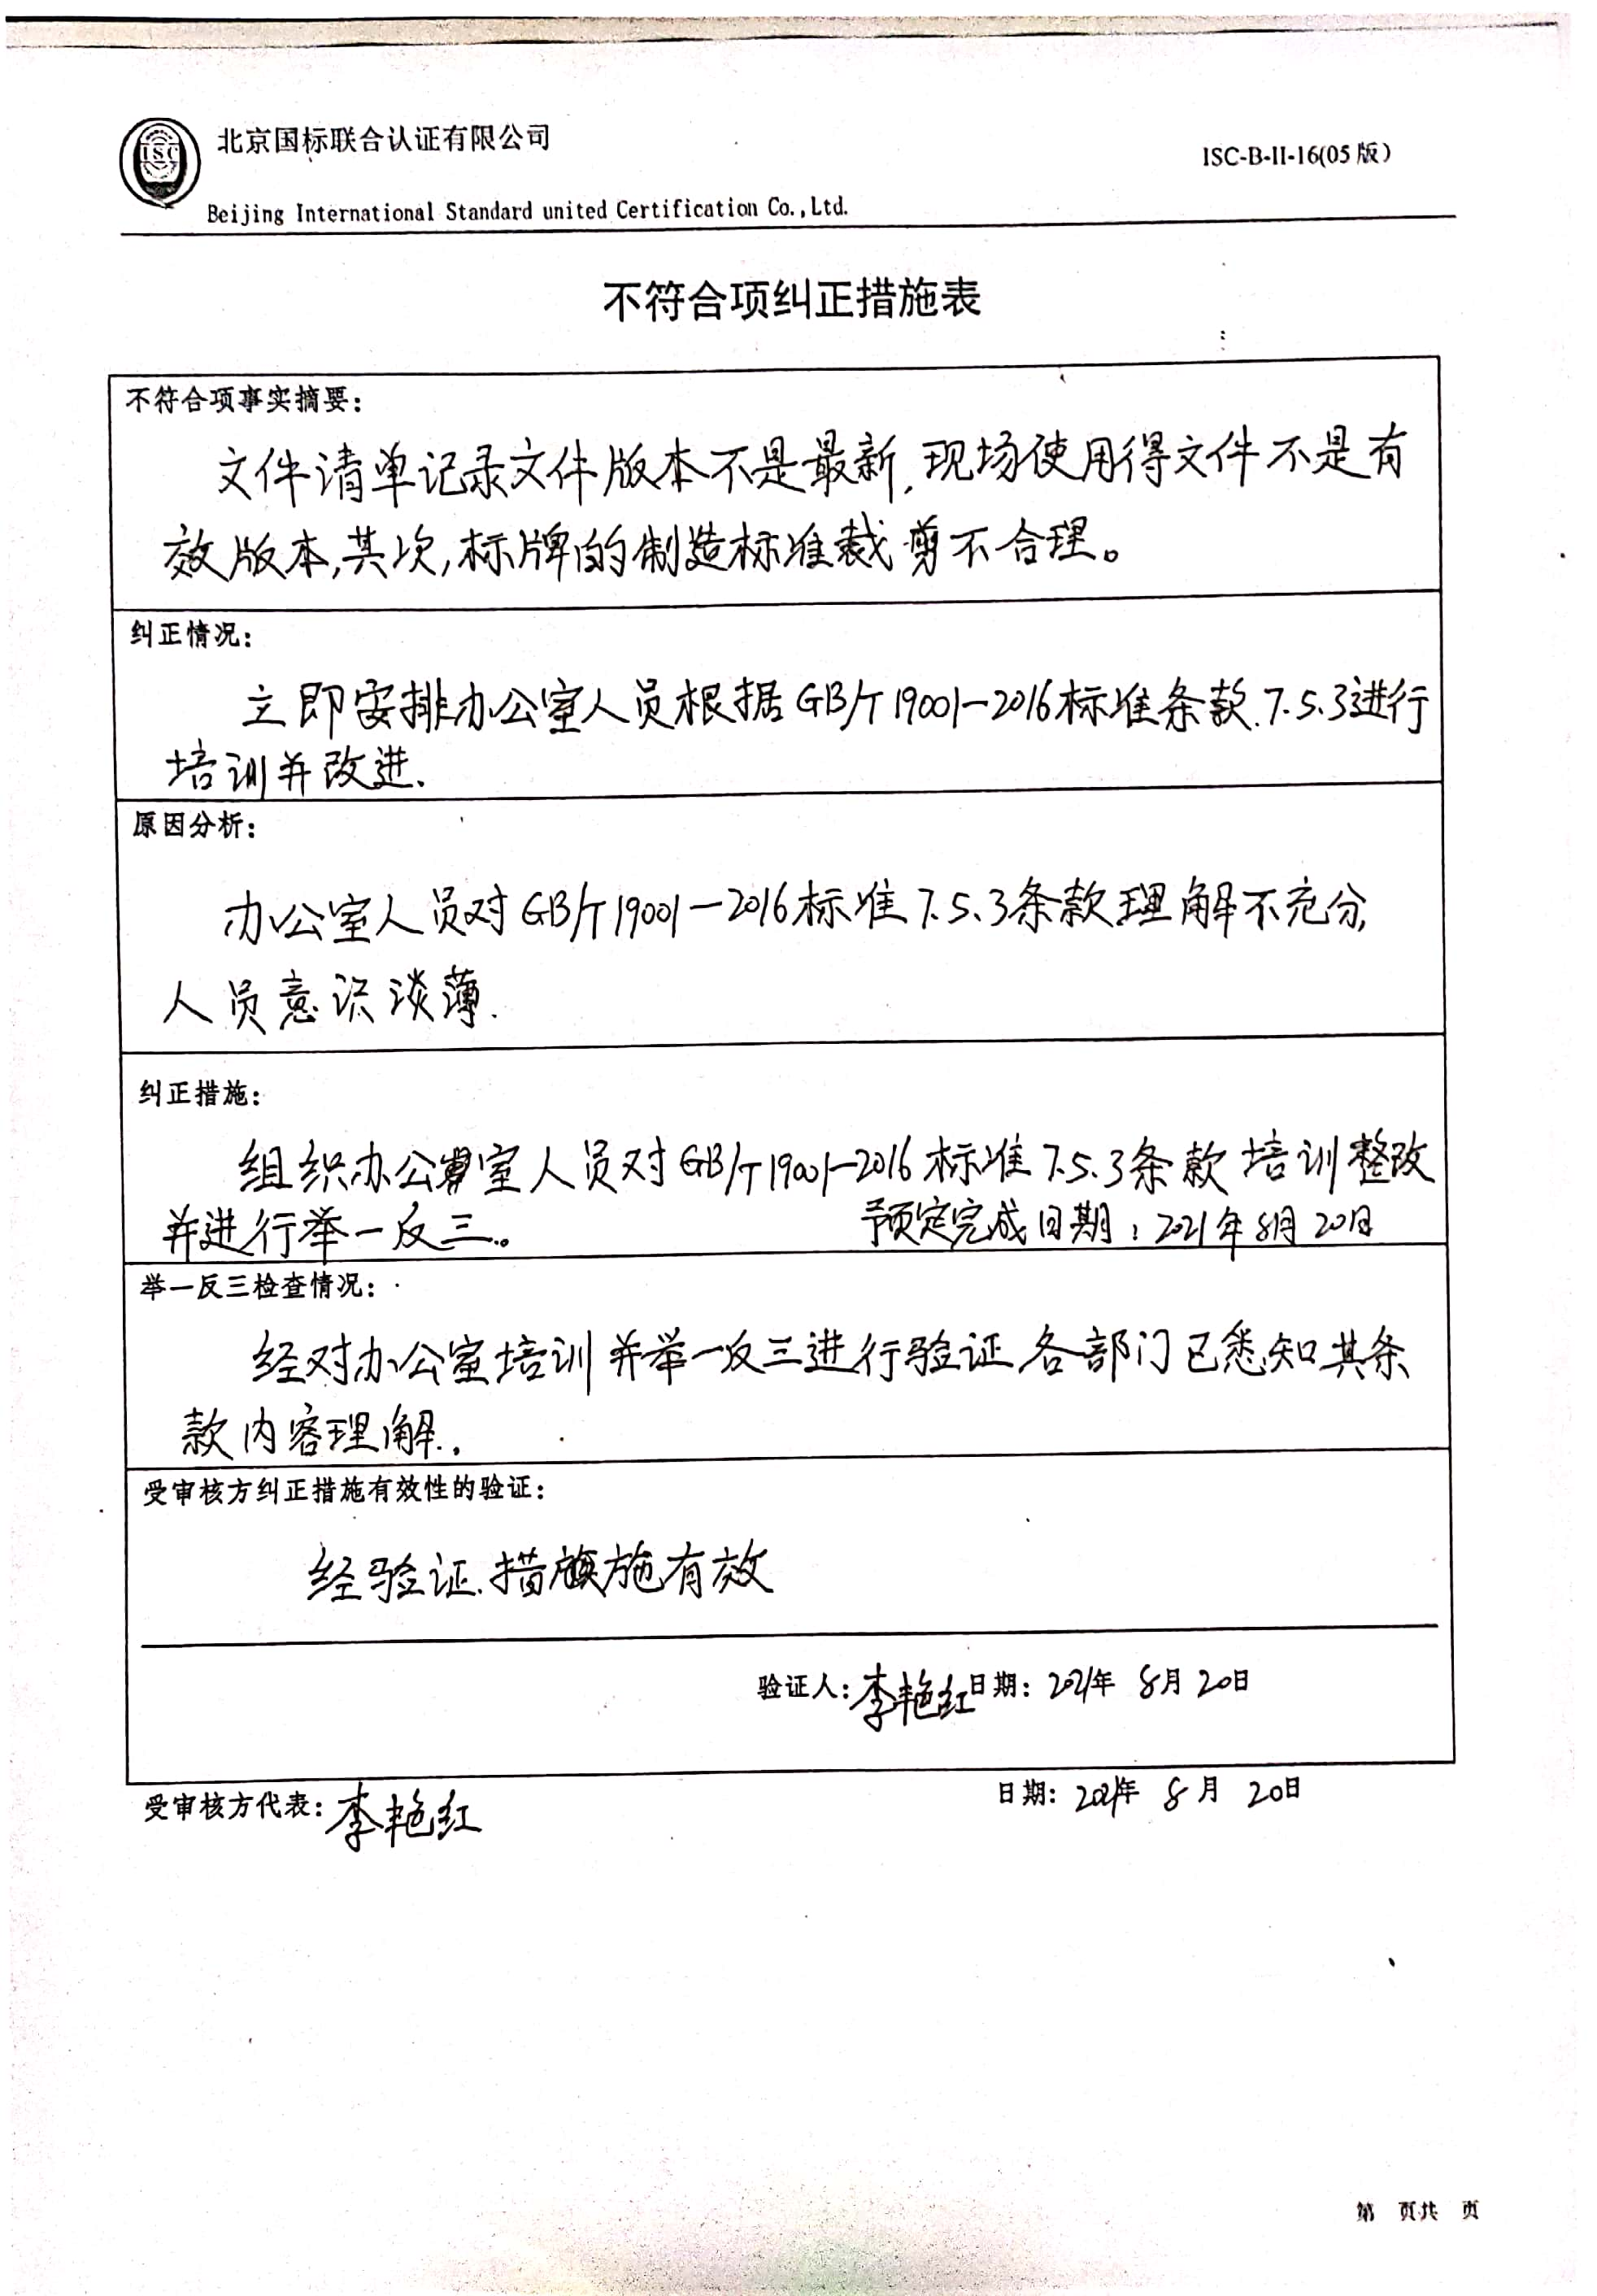 北京国标联合认证有限公司
ISC-B-II-16(05版)
ISC
Beijing International Standard united Certification Co.,Ltd.
不符合项纠正措施表
不符合项事实摘要:
文件清单记录文件版本不是最新,现场使用得文件不是有
效版本,其次,标牌的制造标准裁剪不合理。
纠正情况:
立即安排办公室人员根据GB/T 19001-2016标准条款.7.5.3进行
培训并改进.
原因分析:
办公室人员对GB/T 19001-2016标准7.5.3条款理解不充分,
人员意识淡薄.
纠正措施:
组织办公室人员对GB/T 19001-2016标准7.5.3条款培训整改
并进行举一反三。 预定完成日期:2021年8月20日
举一反三检查情况:
经对办公室培训并举一反三进行验证.各部门已悉知其条
款内容理解.
受审核方纠正措施有效性的验证:
经验证.措施有效
验证人:李艳红日期:2021年 8月20日
受审核方代表:李艳红 日期:2021年 8月 20日
第 页共 页